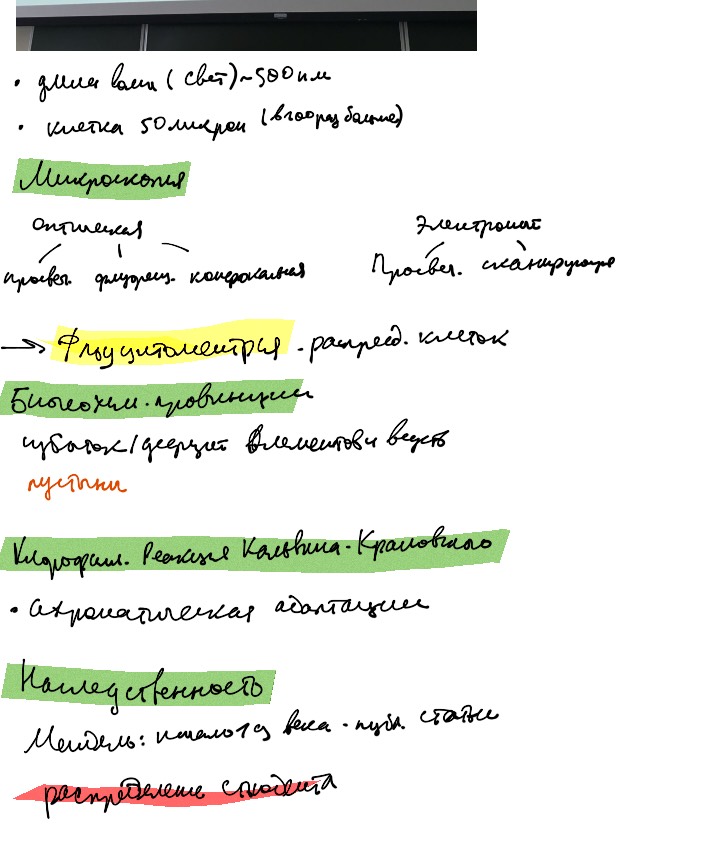 • длина волн (свет) ~ 500 нм
• клетка 50 микрон (в 100 раз больше)
Микроскопия
Оптическая Электронная
просвет. флуоресц. конфокальная Просвеч. сканирующая
→ Флоуцитометрия - распред. клеток
Биогеохим. провинции
избыток/дефицит элементов и веществ
пустыни
Хлорофилл. Реакция Кальвина-
• ахроматическая адаптация
Наследственность
Мендель: начало 19 века - публ. статьи
распределение Стьюдента